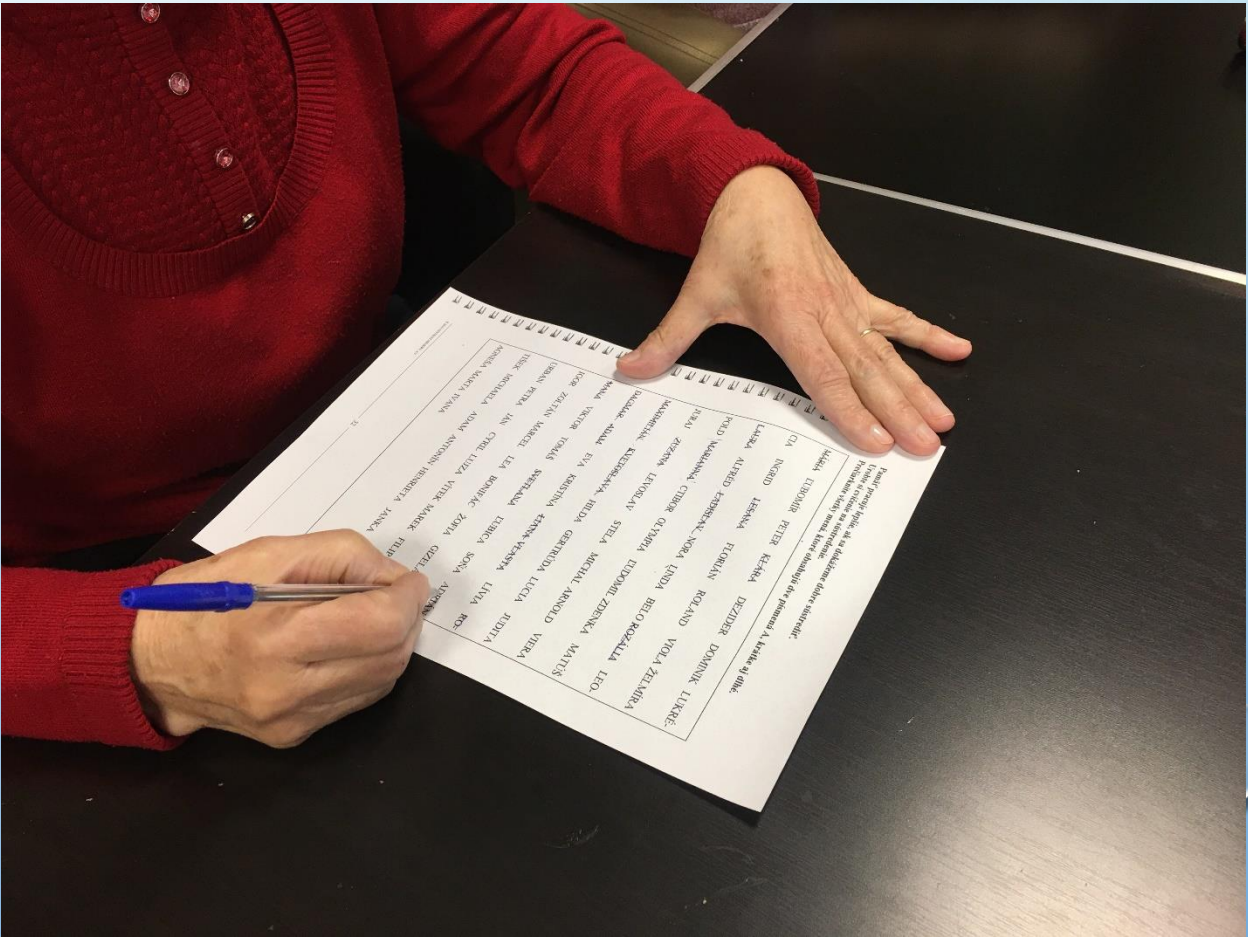 Pamäť pracuje lepšie, ak sa dokážeme dobre sústrediť.
Urobte si cvičenie na sústredenie.
Preškrtnite všetky mená, ktoré obsahujú dve písmená A, krátke aj dlhé.
MÁRIA ĽUBOMÍR PETER KLÁRA DEZIDER DOMINIK LUKRÉ-
CIA INGRID LESANA FLORIÁN ROLAND VIOLA ŽELMÍRA
LAURA ALFRED LADISLAV NORA LINDA BELO ROZÁLIA LEO-
POLD MARIANNA CTIBOR OLYMPIA ĽUDOMIL ZDENKA MATÚŠ
JURAJ ZUZANA LEVOSLAV STELA MICHAL ARNOLD VIERA
MAXIMILIÁN KVETOSLAVA HILDA GERTRÚDA LUCIA JUDITA
DAGMAR ADAM EVA KRISTÍNA LIANA VLASTA LÍVIA RO-
MANA VIKTOR TOMÁŠ SVETLANA ĽUBICA SOŇA ADRIÁN
IGOR ZOLTÁN MARCEL LEA BONIFÁC ŽOFIA
URBAN PETRA JÁN CYRIL LUIZA VÍTEK MAREK FILIP
TIŠEK MICHAELA ADAM ANTONÍN HENRIETA JANKA
AGNEŠA MARTA IVANA